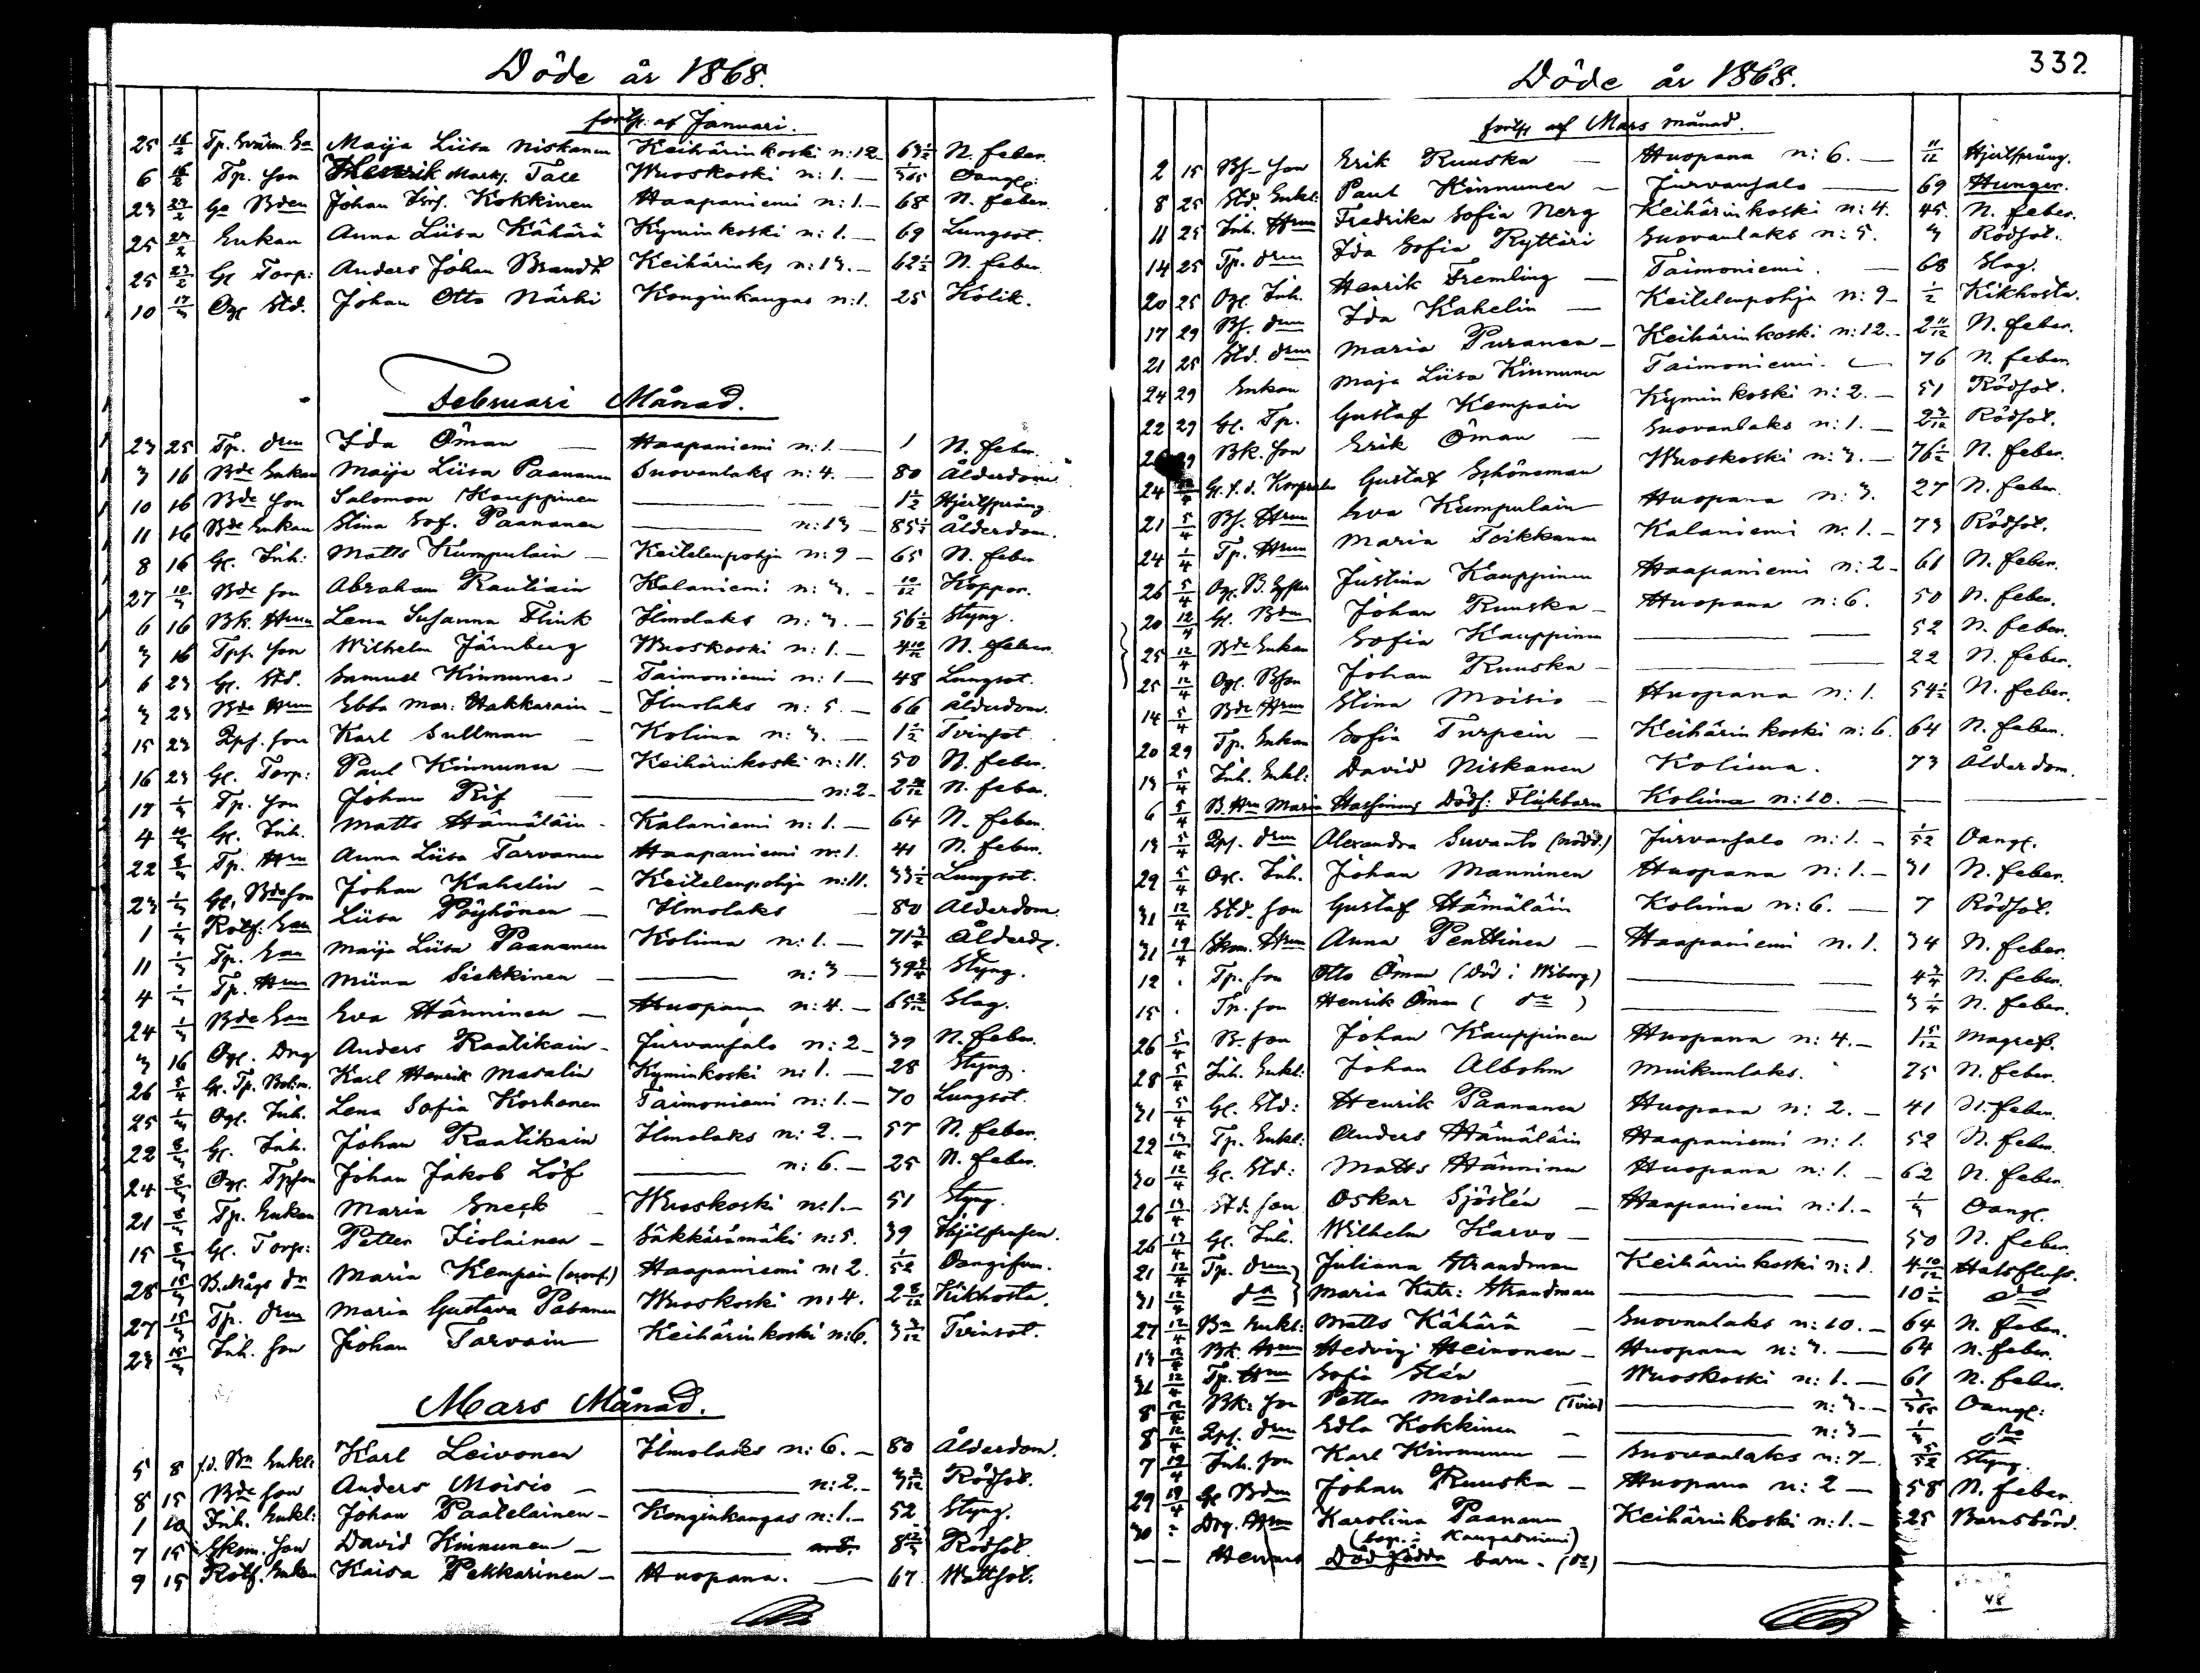 Döde år 1868.
fortss: af Januari.
25 16/2 Tp. Maija Liisa Niskanen Keihärinkoski n:12 63 1/2 N. feber.
6 16/2 Tp. son Henrik Tale Wuoskoski n:1. — 5/365 Oangs:
23 23/2 Gs Bden Johan Kokkinen Haapaniemi n:1. — 68 N. feber.
25 23/2 Enkan Anna Liisa Kähärä Kyminkoski n:1. — 69 Lungsot.
25 23/2 Gs Torp: Anders Johan Brandt Keihärinks n:13. — 62 1/2 N. feber.
10 17/3 Ogs Std. Johan Otto Närhi Konginkangas n:1. 25 Kolik.
Februari Månad.
23 25 Tp. drn Ida Öman — Haapaniemi n:1. — 1 N. feber.
3 16 Bde Enkan Maija Liisa Paananen Suovanlaks n:4. — 80 Ålderdom
10 16 Bde son Salomon Kauppinen — 1 1/2 Hjertsprång
11 16 Bde Enkan Stina Sof. Paananen — n:13 — 85 1/2 Ålderdom.
8 16 Gs. Inh: Matts Kumpulain — Keitelenpohja n:9 — 65 N. feber.
27 10/3 Bde son Abraham Rautiain Kalaniemi n:3. — 10/12 Koppor.
6 16 Bk. Hrun Lena Susanna Flink Ilmolaks n:3. — 56 1/2 Styng.
3 16 Tps. son Wilhelm Järnberg Wuoskoski n:1. — 4 10/12 N. feber.
6 23 Gs. Std. Samuel Kinnunen — Taimoniemi n:1 — 48 Lungsot.
3 23 Bde Hrun Ebba Mar: Hakkarain — Ilmolaks n:5. — 66 Ålderdom.
15 23 Zps. son Karl Sullman — Kolima n:3. — 1 1/2 Tvinsot.
16 23 Gs. Torp: Paul Kinnunen — Keihärinkoski n:11. 50 N. feber.
17 1/3 Tp. son Johan Rif — n:2 — N. feber.
4 Gs. Inh. Matts Hämäläin — Kalaniemi n:1. — 64 N. feber.
22 8/3 Tp. Hrun Anna Liisa Tarvanen Haapaniemi n:1. 41 N. feber.
23 1/3 Gs. Bde son Johan Kahelin — Keitelenpohja n:11. 33 1/2 Lungsot.
1 1/3 Rotf: Ean Liisa Pöyhönen — Ilmolaks — 80 Ålderdom
11 1/3 Tp. Ean Maija Liisa Paananen Kolima n:1. — 71 3/4 Ålderds.
4 1/3 Tp. Hrun Miina Siekkinen — n:3 — 39 3/4 Styng.
24 1/3 Bde Ean Eva Hänninen — Huopana n:4. — Slag.
3 16 Ogs. Dng Anders Raatikain — Jurvansalo n:2 — 39 N. feber.
26 5/4 Gs. Tp. Karl Henrik Masalin Kyminkoski n:1. — 28 Styng.
25 1/3 Ogs. Inh. Lena Sofia Korhonen Taimoniemi n:1. — 70 Lungsot.
22 8/3 Gs. Inh. Johan Raatikain Ilmolaks n:2. — 57 N. feber.
24 8/3 Ogs. Tpson Johan Jakob Löf — n:6. — 25 N. feber.
21 8/3 Tp. Enkan Maria Sneck — Wuoskoski n:1. — 51 Styng.
15 8/3 Gs. Torp: Petter Jiolainen — Säkkärämäki n:5. 39
28 15/3 B. Mågs dr Maria Kempain Haapaniemi n:2. 1/52 Oangifven.
27 15/3 Tp. drn Maria Gustava Pabanen Wuoskoski n:4. 2 8/12 Kikhosta.
23 15/3 Inh. son Johan Tarvain Keihärinkoski n:6. 3/12 Tvinsot.
Mars Månad.
5 8 f.d. Bn Enkl: Karl Leivonen Ilmolaks n:6. — 80 Ålderdom.
8 15 Bde son Anders Moisio — n:2. — Rödsot.
1 10 Inh. Enkl: Johan Paatelainen — Konginkangas n:1. — 52 Styng.
7 15 Skom. son David Kinnunen — Rödsot.
9 15 Rotf. Enkan Kaisa Pekkarinen — Huopana. — 67 Wattsot.
332.
Döde år 1868.
fortss af Mars månad.
2 15 Bs. son Erik Ruuska — Huopana n:6. — 11/12 Hjertsprång.
8 25 Std. Enkl: Paul Kinnunen — Jurvansalo — 69 Hunger.
11 25 Inh. Hrun Fredrika Sofia Nerg Keihärinkoski n:4. 45. N. feber.
14 25 Tp. drn Ida Sofia Ryttäri Suovanlaks n:5. 3 Rödsot.
20 25 Ogs. Inh. Henrik Fremling — Taimoniemi. — 68 Slag.
17 29 Bs. drn Ida Kahelin — Keitelenpohja n:9 — 1/2 Kikhosta.
21 25 Std. drn Maria Puranen — Keihärinkoski n:12. — 2 11/12 N. feber.
24 29 Enkan Maja Liisa Kinnunen Taimoniemi. — 76 N. feber.
22 29 Gs. Tp. Gustaf Kempain Kyminkoski n:2. — 51 Rödsot.
29 Bk. son Erik Öman — Suovanlaks n:1. — 2 3/12 Rödsot.
24 Gs. f.d. Korpralen Gustaf Schöneman Wuoskoski n:3. — 76 1/2 N. feber.
21 5/4 Bs. Hrun Eva Kumpulain Huopana n:3. 27 N. feber.
24 1/4 Tp. Hrun Maria Toikkanen Kalaniemi n:1. — 73 Rödsot.
26 5/4 Ogs. B. Syster Justina Kauppinen Haapaniemi n:2 — 61 N. feber.
20 12/4 Gs. Bden Johan Ruuska — Huopana n:6. 50 N. feber.
25 12/4 Bde Enkan Sofia Kauppinen — 52 N. feber.
25 12/4 Ogs. Bson Johan Ruuska — 22 N. feber.
14 5/4 Bde Hrun Stina Moisio — Huopana n:1. 54 1/2 N. feber.
20 29 Tp. Enkan Sofia Turpein — Keihärinkoski n:6. 64 N. feber.
13 5/4 Inh. Enkl: David Niskanen Kolima. 73 Ålderdom.
6 5/4 B. Hrn Maria Hassinens Dödf: Flickbarn Kolima n:10. —
13 5/4 Zps. drn Alexandra Suvanto (nödd.) Jurvansalo n:1. — 1/52 Oangs.
29 5/4 Ogs. Inh. Johan Manninen Huopana n:1. — 31 N. feber.
31 12/4 Std. son Gustaf Hämäläin Kolima n:6. — 7 Rödsot.
31 19/4 Skom. Hrun Anna Penttinen — Haapaniemi n.1. 34 N. feber.
12 . Tp. son Otto Öman (Död i Wiborg) — 4 3/4 N. feber.
15 . Tp. son Henrik Öman ( do ) — 3 1/4 N. feber.
26 5/4 B. son Johan Kauppinen Huopana n:4. — 1 5/12 Magref.
28 5/4 Inh. Enkl: Johan Albohm Muikunlaks. 75 N. feber.
31 5/4 Gs. Std: Henrik Paananen Huopana n:2. — 41 N. feber.
22 13/4 Tp. Enkl: Anders Hämäläin Haapaniemi n:1. 52 N. feber.
30 12/4 Gs. Std: Matts Hänninen Huopana n:1. — 62 N. feber.
26 13/4 Std. son Oskar Sjöstén — Haapaniemi n:1. — 1/3 Oangs.
26 13/4 Gs. Inh. Wilhelm Karvo — 50 N. feber.
21 12/4 Tp. drn Juliana Strandman Keihärinkoski n:1. 4 10/12 Halsfluss.
31 12/4 do Maria Katr: Strandman — 10 1/2 do
27 12/4 Bn Enkl: Matts Kähärä — Suovanlaks n:10. — 64 N. feber.
13 12/4 Bk. Hrun Hedvig Heinonen — Huopana n:3. — 64 N. feber.
31 12/4 Tp. Hrun Sofia Stén — Wuoskoski n:1. — 61 N. feber.
8 12/4 Bk: son Petter Moilanen — n:3. — Oangs:
8 12/4 Zps. drn Edla Kokkinen — n:3 — 1/3 do
7 19/4 Inh. son Karl Kinnunen — Suovanlaks n:7 — 5/52 Styng.
29 19/4 Gs Bden Johan Ruuska — Huopana n:2 — 58 N. feber.
30 Drg. Hrun Karolina Paananen Keihärinkoski n:1. — 25 Barnsbörd.
(begr. i Kangasniemi)
— — Hennes Död födda barn. (do) —
48